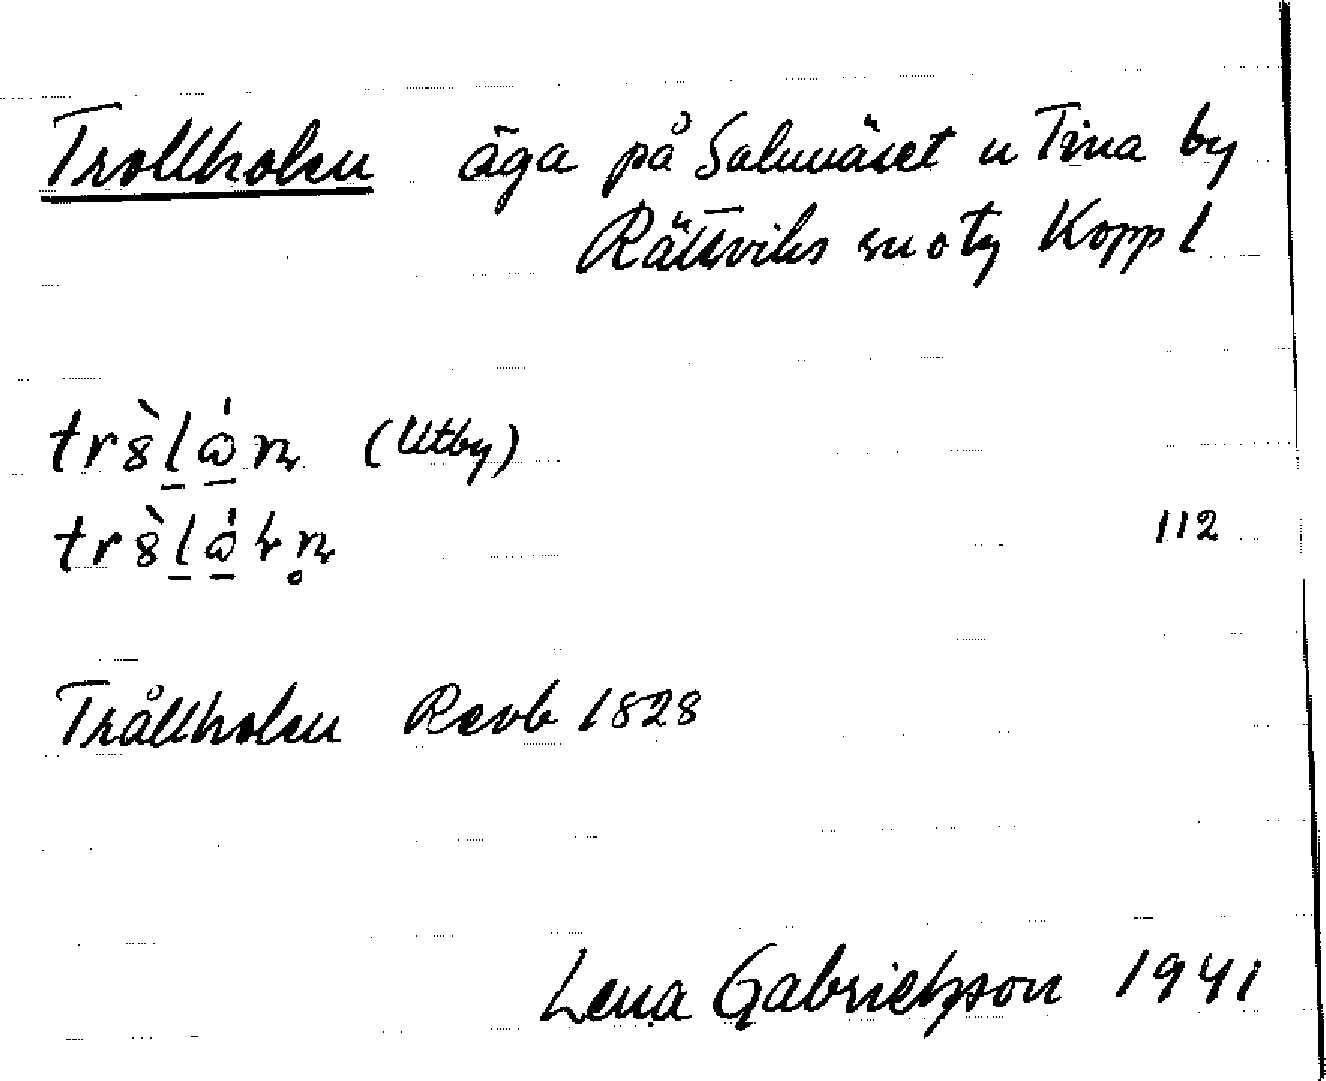 Trollholen äga på Salunäset u Tina by
Rättviks sn o tg Kopp l
(Utby)
112
Trållholen Revb 1828
Lena Gabrielsson 1941